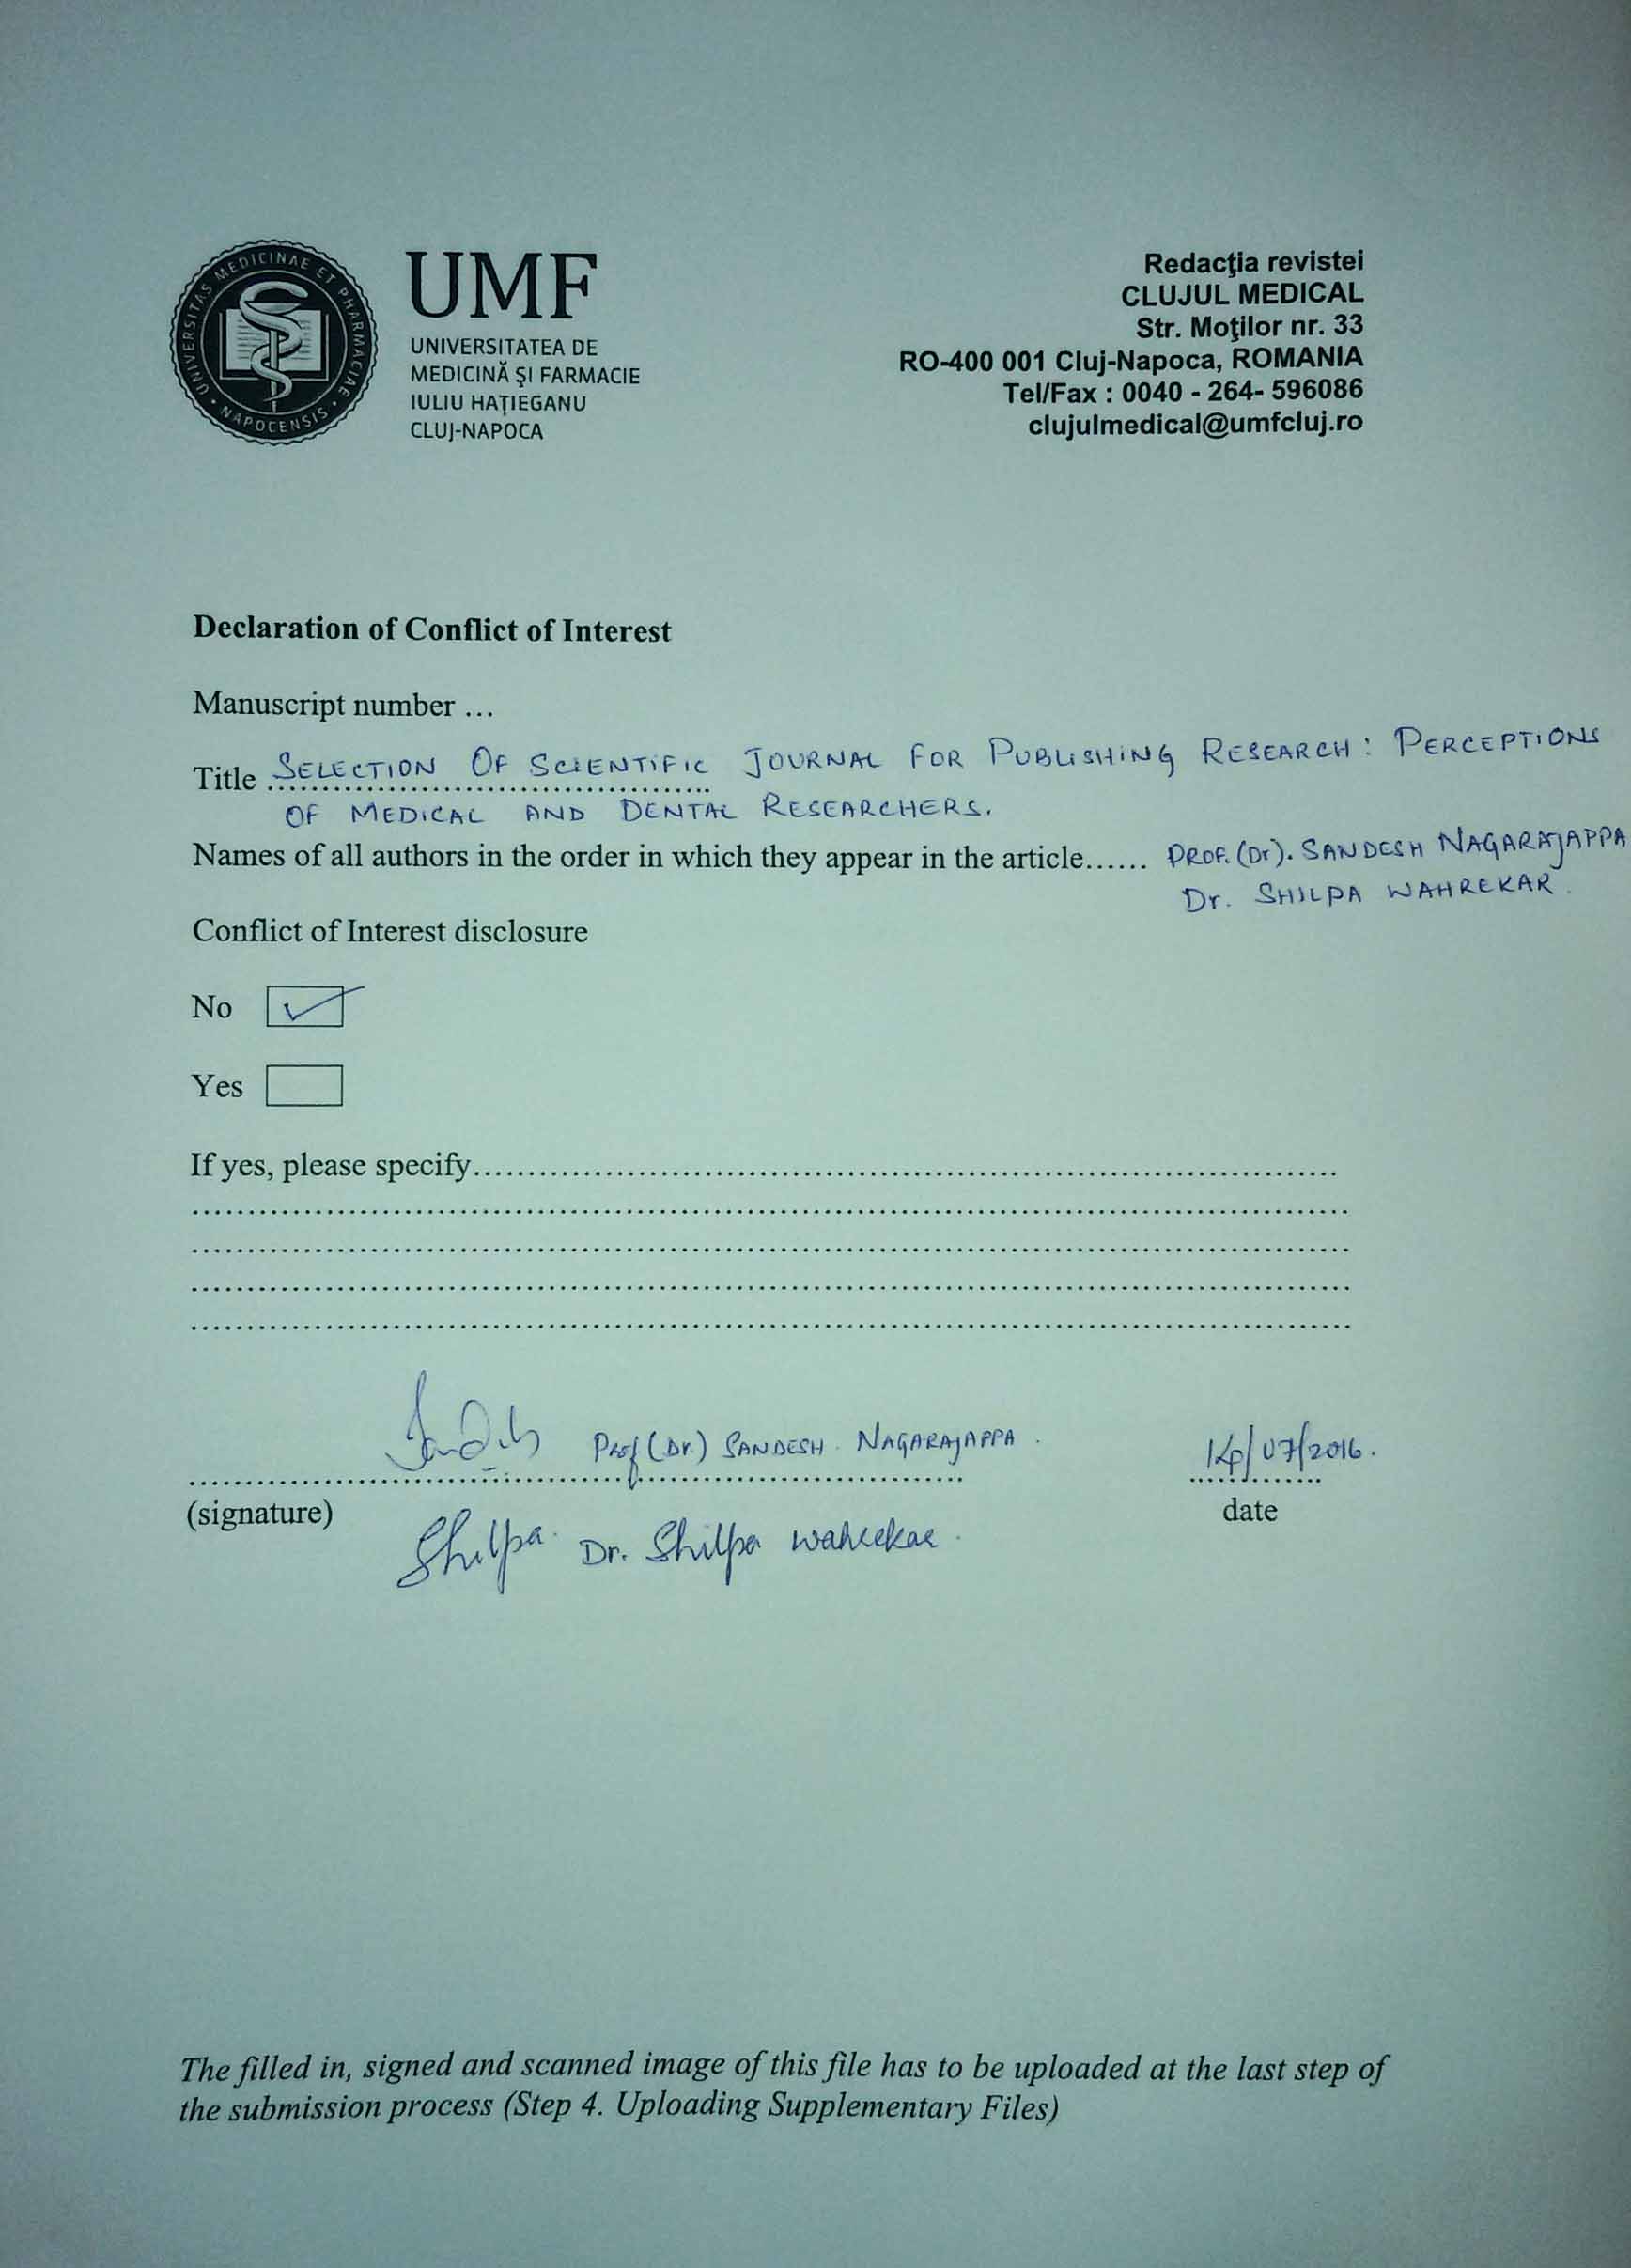 UNIVERSITAS MEDICINAE ET PHARMACIAE · NAPOCENSIS ·
UMF
UNIVERSITATEA DE
MEDICINĂ ŞI FARMACIE
IULIU HAŢIEGANU
CLUJ-NAPOCA
Redacţia revistei
CLUJUL MEDICAL
Str. Moţilor nr. 33
RO-400 001 Cluj-Napoca, ROMANIA
Tel/Fax : 0040 - 264- 596086
clujulmedical@umfcluj.ro
Declaration of Conflict of Interest
Manuscript number ...
Title SELECTION OF SCIENTIFIC JOURNAL FOR PUBLISHING RESEARCH: PERCEPTIONS
OF MEDICAL AND DENTAL RESEARCHERS.
Names of all authors in the order in which they appear in the article...... PROF. (Dr). SANDESH NAGARAJAPPA
Dr. SHILPA WAHREKAR.
Conflict of Interest disclosure
No ✓
Yes
If yes, please specify
Prof (Dr.) SANDESH NAGARAJAPPA. 14/07/2016.
(signature) date
Shilpa Dr. Shilpa Wahrekar.
The filled in, signed and scanned image of this file has to be uploaded at the last step of
the submission process (Step 4. Uploading Supplementary Files)